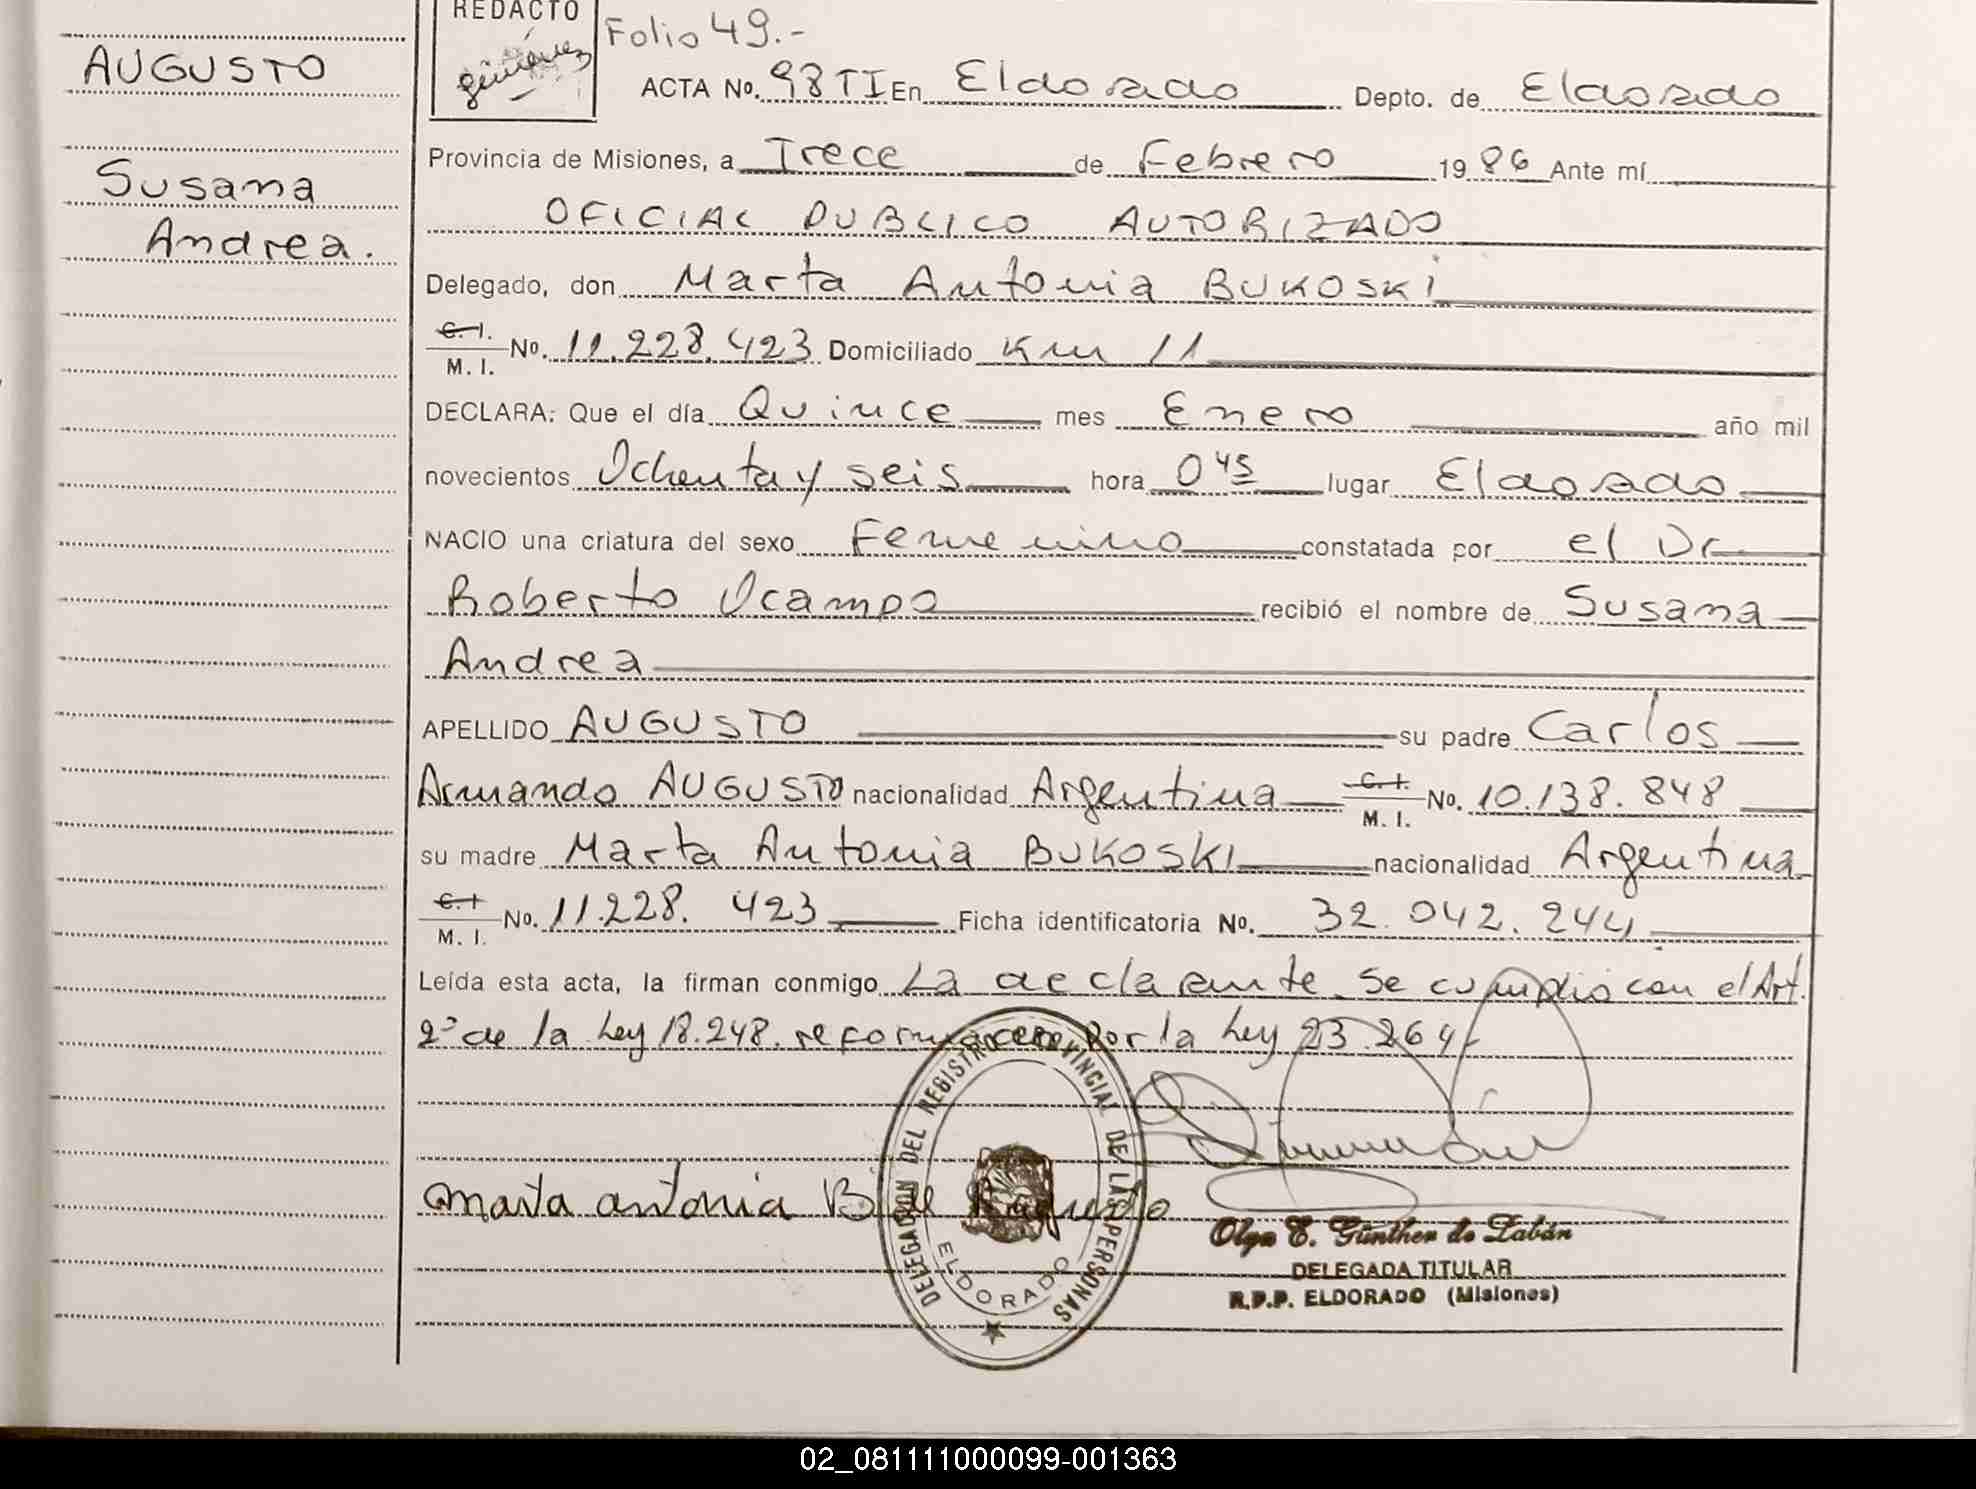 AUGUSTO
Susana
Andrea.
REDACTO
Giménez
Folio 49.-
ACTA No. 98 TI En Eldorado Depto. de Eldorado
Provincia de Misiones, a Trece de Febrero 1986 Ante mí
OFICIAL PUBLICO AUTORIZADO
Delegado, don Marta Antonia BUKOSKI
C. I.
M. I. No. 11.228.423 Domiciliado Km 11
DECLARA: Que el día Quince mes Enero año mil
novecientos Ochenta y seis hora 0 45 lugar Eldorado
NACIO una criatura del sexo Femenino constatada por el Dr
Roberto Ocampo recibió el nombre de Susana
Andrea
APELLIDO AUGUSTO su padre Carlos
Armando AUGUSTO nacionalidad Argentina C. I. M. I. No. 10.138.848
su madre Marta Antonia BUKOSKI nacionalidad Argentina
C. I. M. I. No. 11.228.423 Ficha identificatoria No. 32.042.244
Leída esta acta, la firman conmigo La declarante. Se cumplio con el Art.
2º de la Ley 18.248. por la Ley 23.264
Marta antonia B de Augusto
DELEGACION DEL REGISTRO PROVINCIAL DE LAS PERSONAS
ELDORADO
Olga E. Günther de Zabán
DELEGADA TITULAR
R.P.P. ELDORADO (Misiones)
02_081111000099-001363